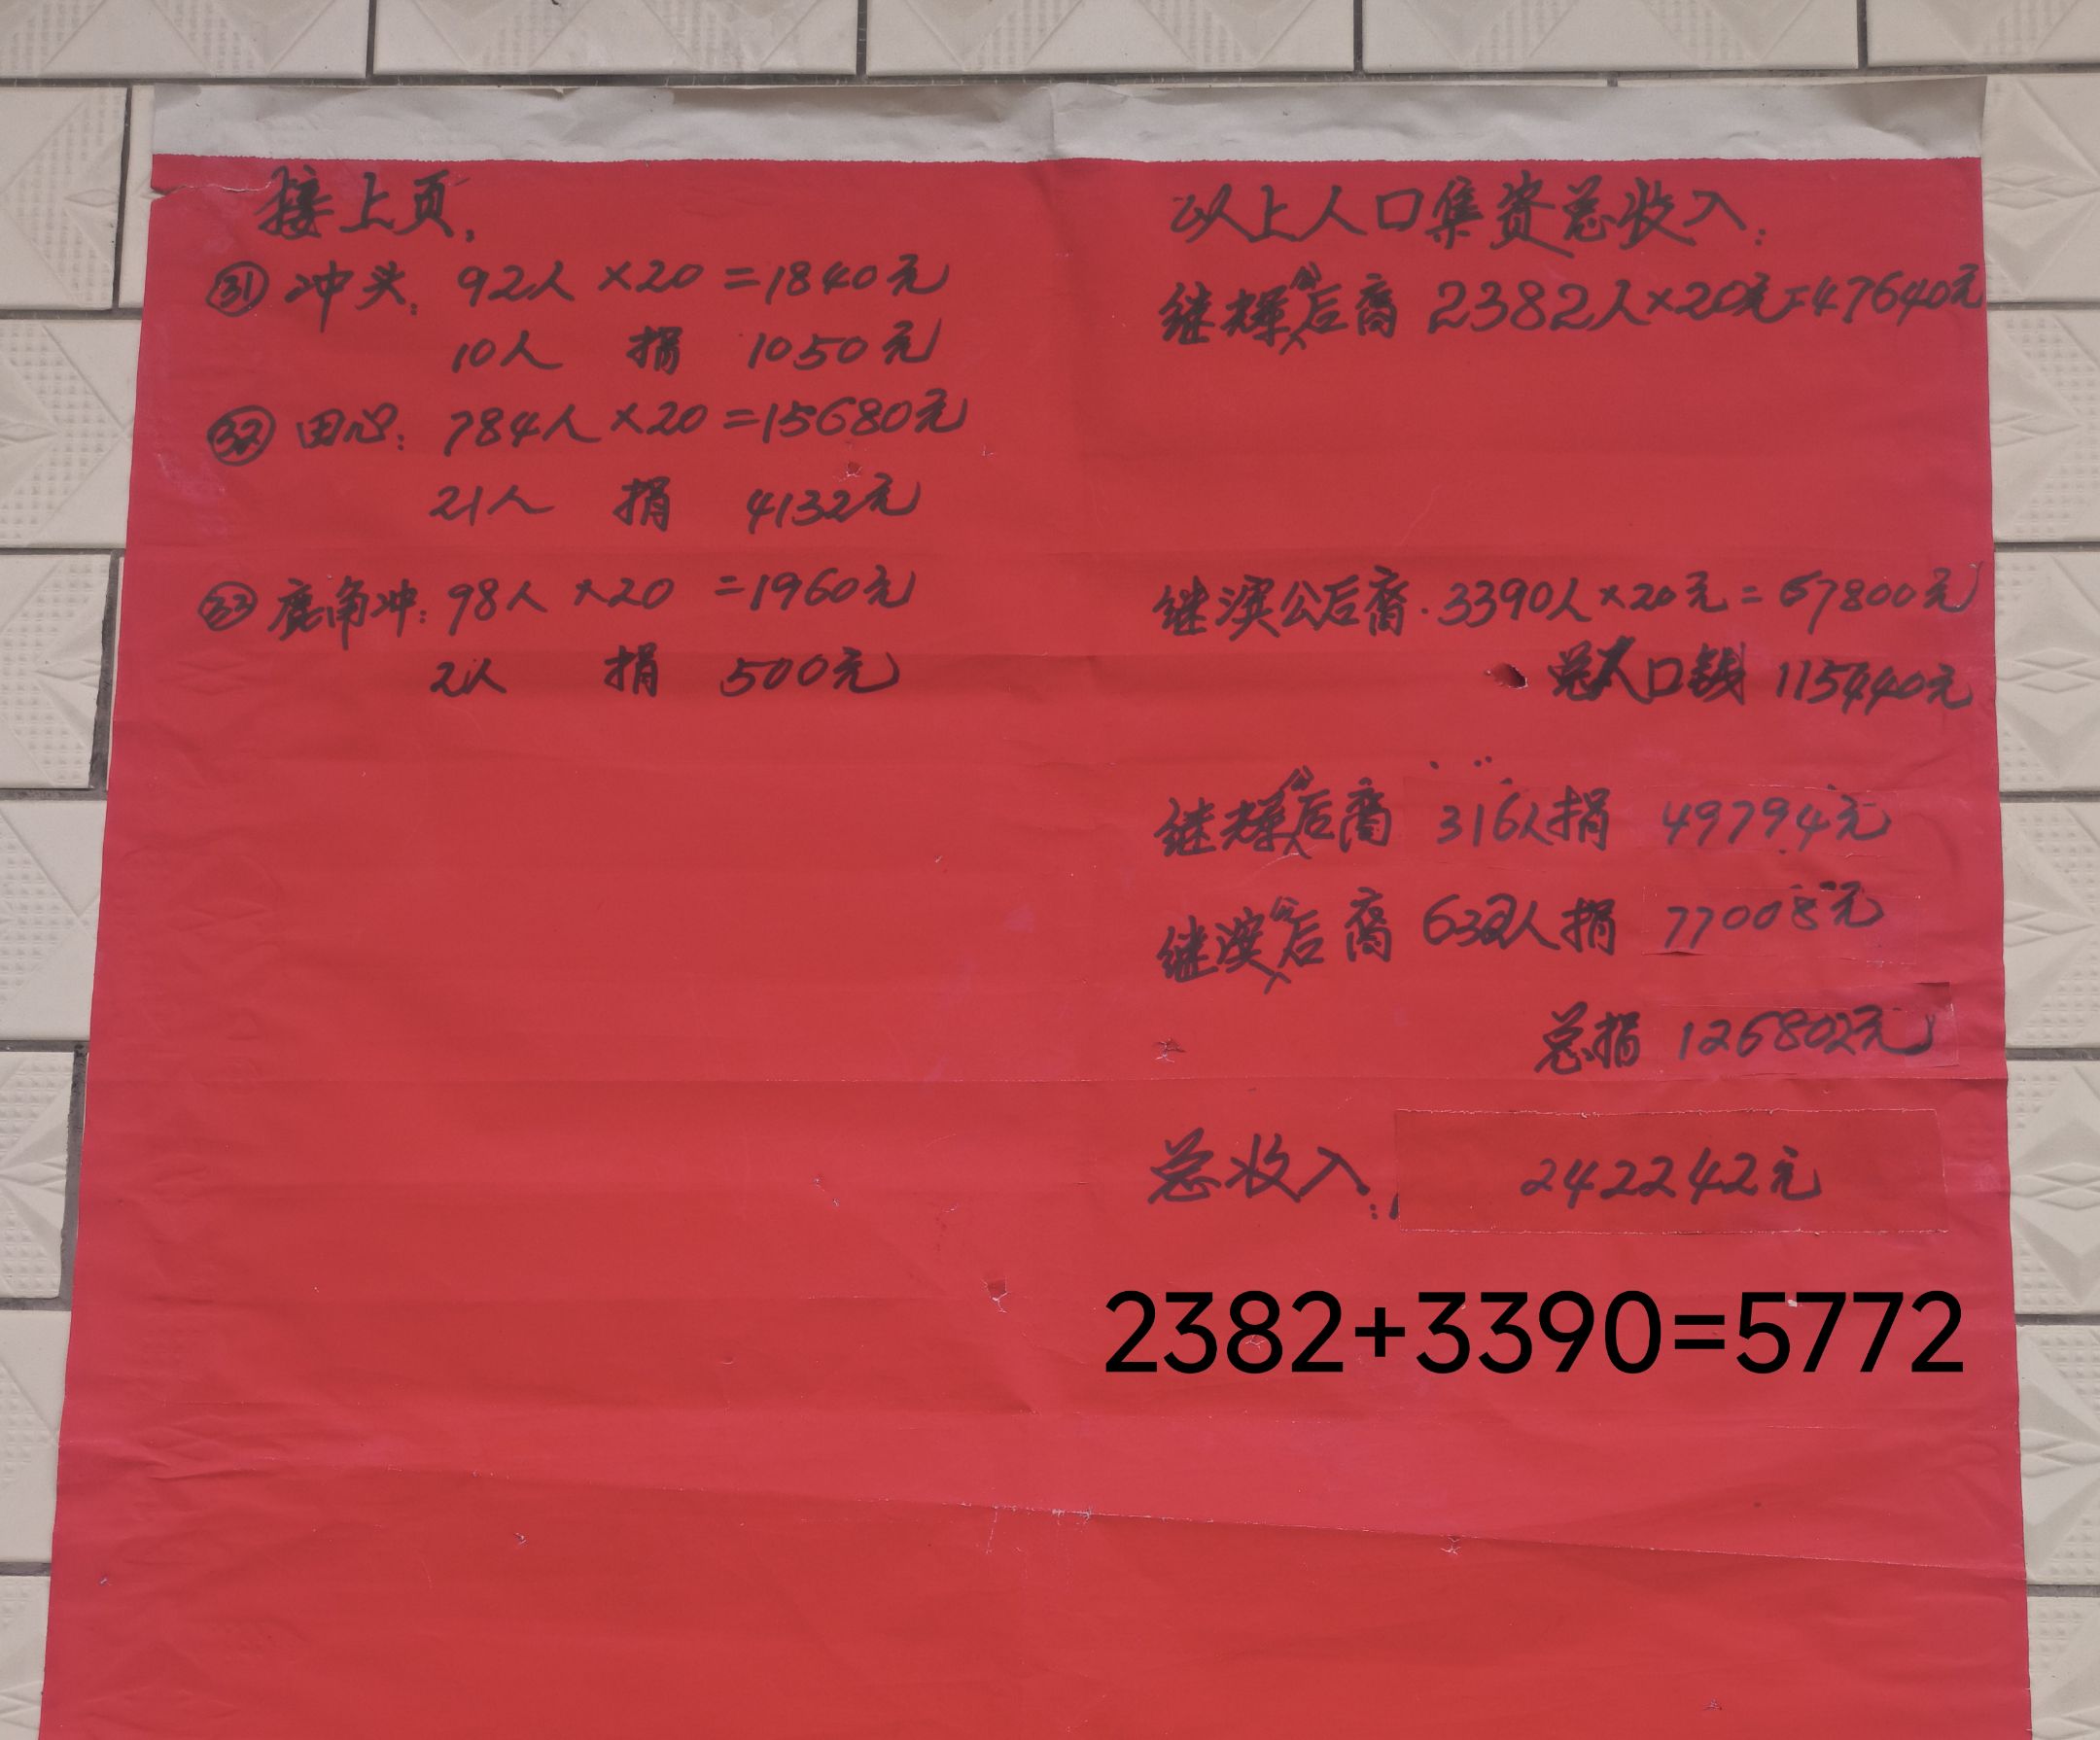 接上页,
㉛ 冲头: 92人 ×20 =1840元
10人 捐 1050元
㉜ 田心: 784人 ×20 =15680元
21人 捐 4132元
㉝ 鹿角冲: 98人 ×20 =1960元
2人 捐 500元
以上人口集资总收入:
继辉公后裔 2382人×20元=47640元
继滨公后裔.3390人×20元=67800元
总人口钱 115440元
继辉公后裔 316人捐 49794元
继滨公后裔 人捐 77008元
总捐 126802元
总收入: 242242元
2382+3390=5772